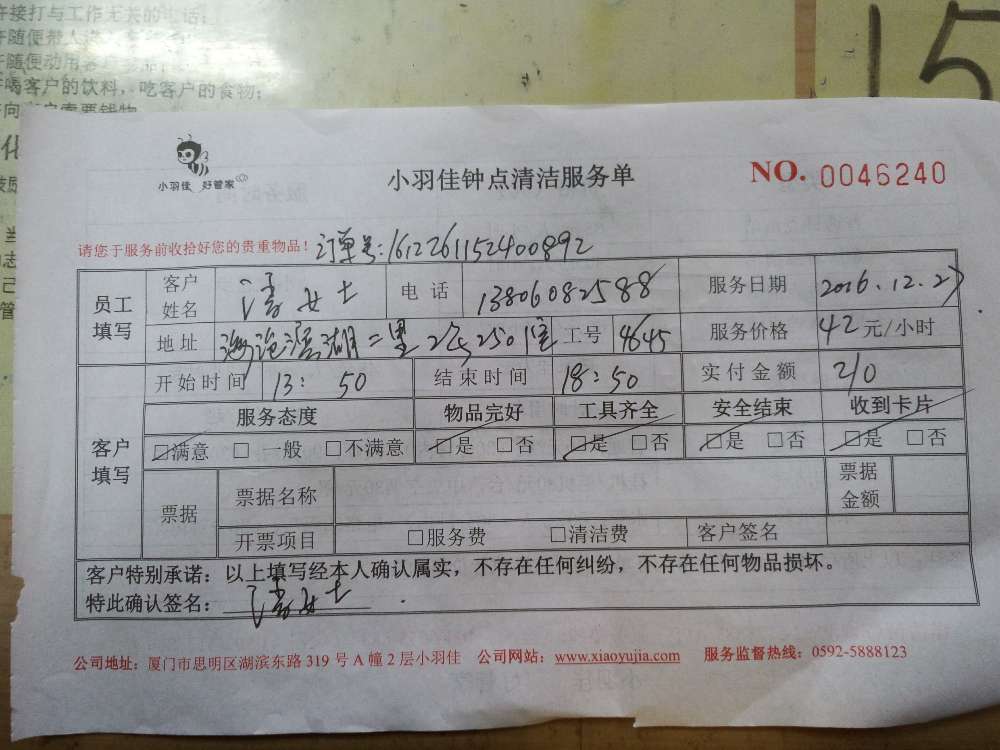 许接打与工作无关的电话;
随便带人
随便动用客户
喝客户的饮料，吃客户的食物;
15
小羽佳 好管家
小羽佳钟点清洁服务单
NO. 0046240
请您于服务前收拾好您的贵重物品！ 订单号:1612261152400892
员工填写 客户姓名 女士 电话 13806082588 服务日期 2016.12.27
地址 海沧滨湖二里 工号 4645 服务价格 42元/小时
客户填写 开始时间 13:50 结束时间 18:50 实付金额 210
服务态度 物品完好 工具齐全 安全结束 收到卡片
☑满意 □ 一般 □不满意 ☑是 □否 ☑是 □否 ☑是 □否 ☑是 □否
票据 票据名称 票据金额
开票项目 □服务费 □清洁费 客户签名
客户特别承诺：以上填写经本人确认属实，不存在任何纠纷，不存在任何物品损坏。
特此确认签名： 女士
公司地址：厦门市思明区湖滨东路 319 号 A 幢 2 层小羽佳 公司网站：www.xiaoyujia.com 服务监督热线：0592-5888123